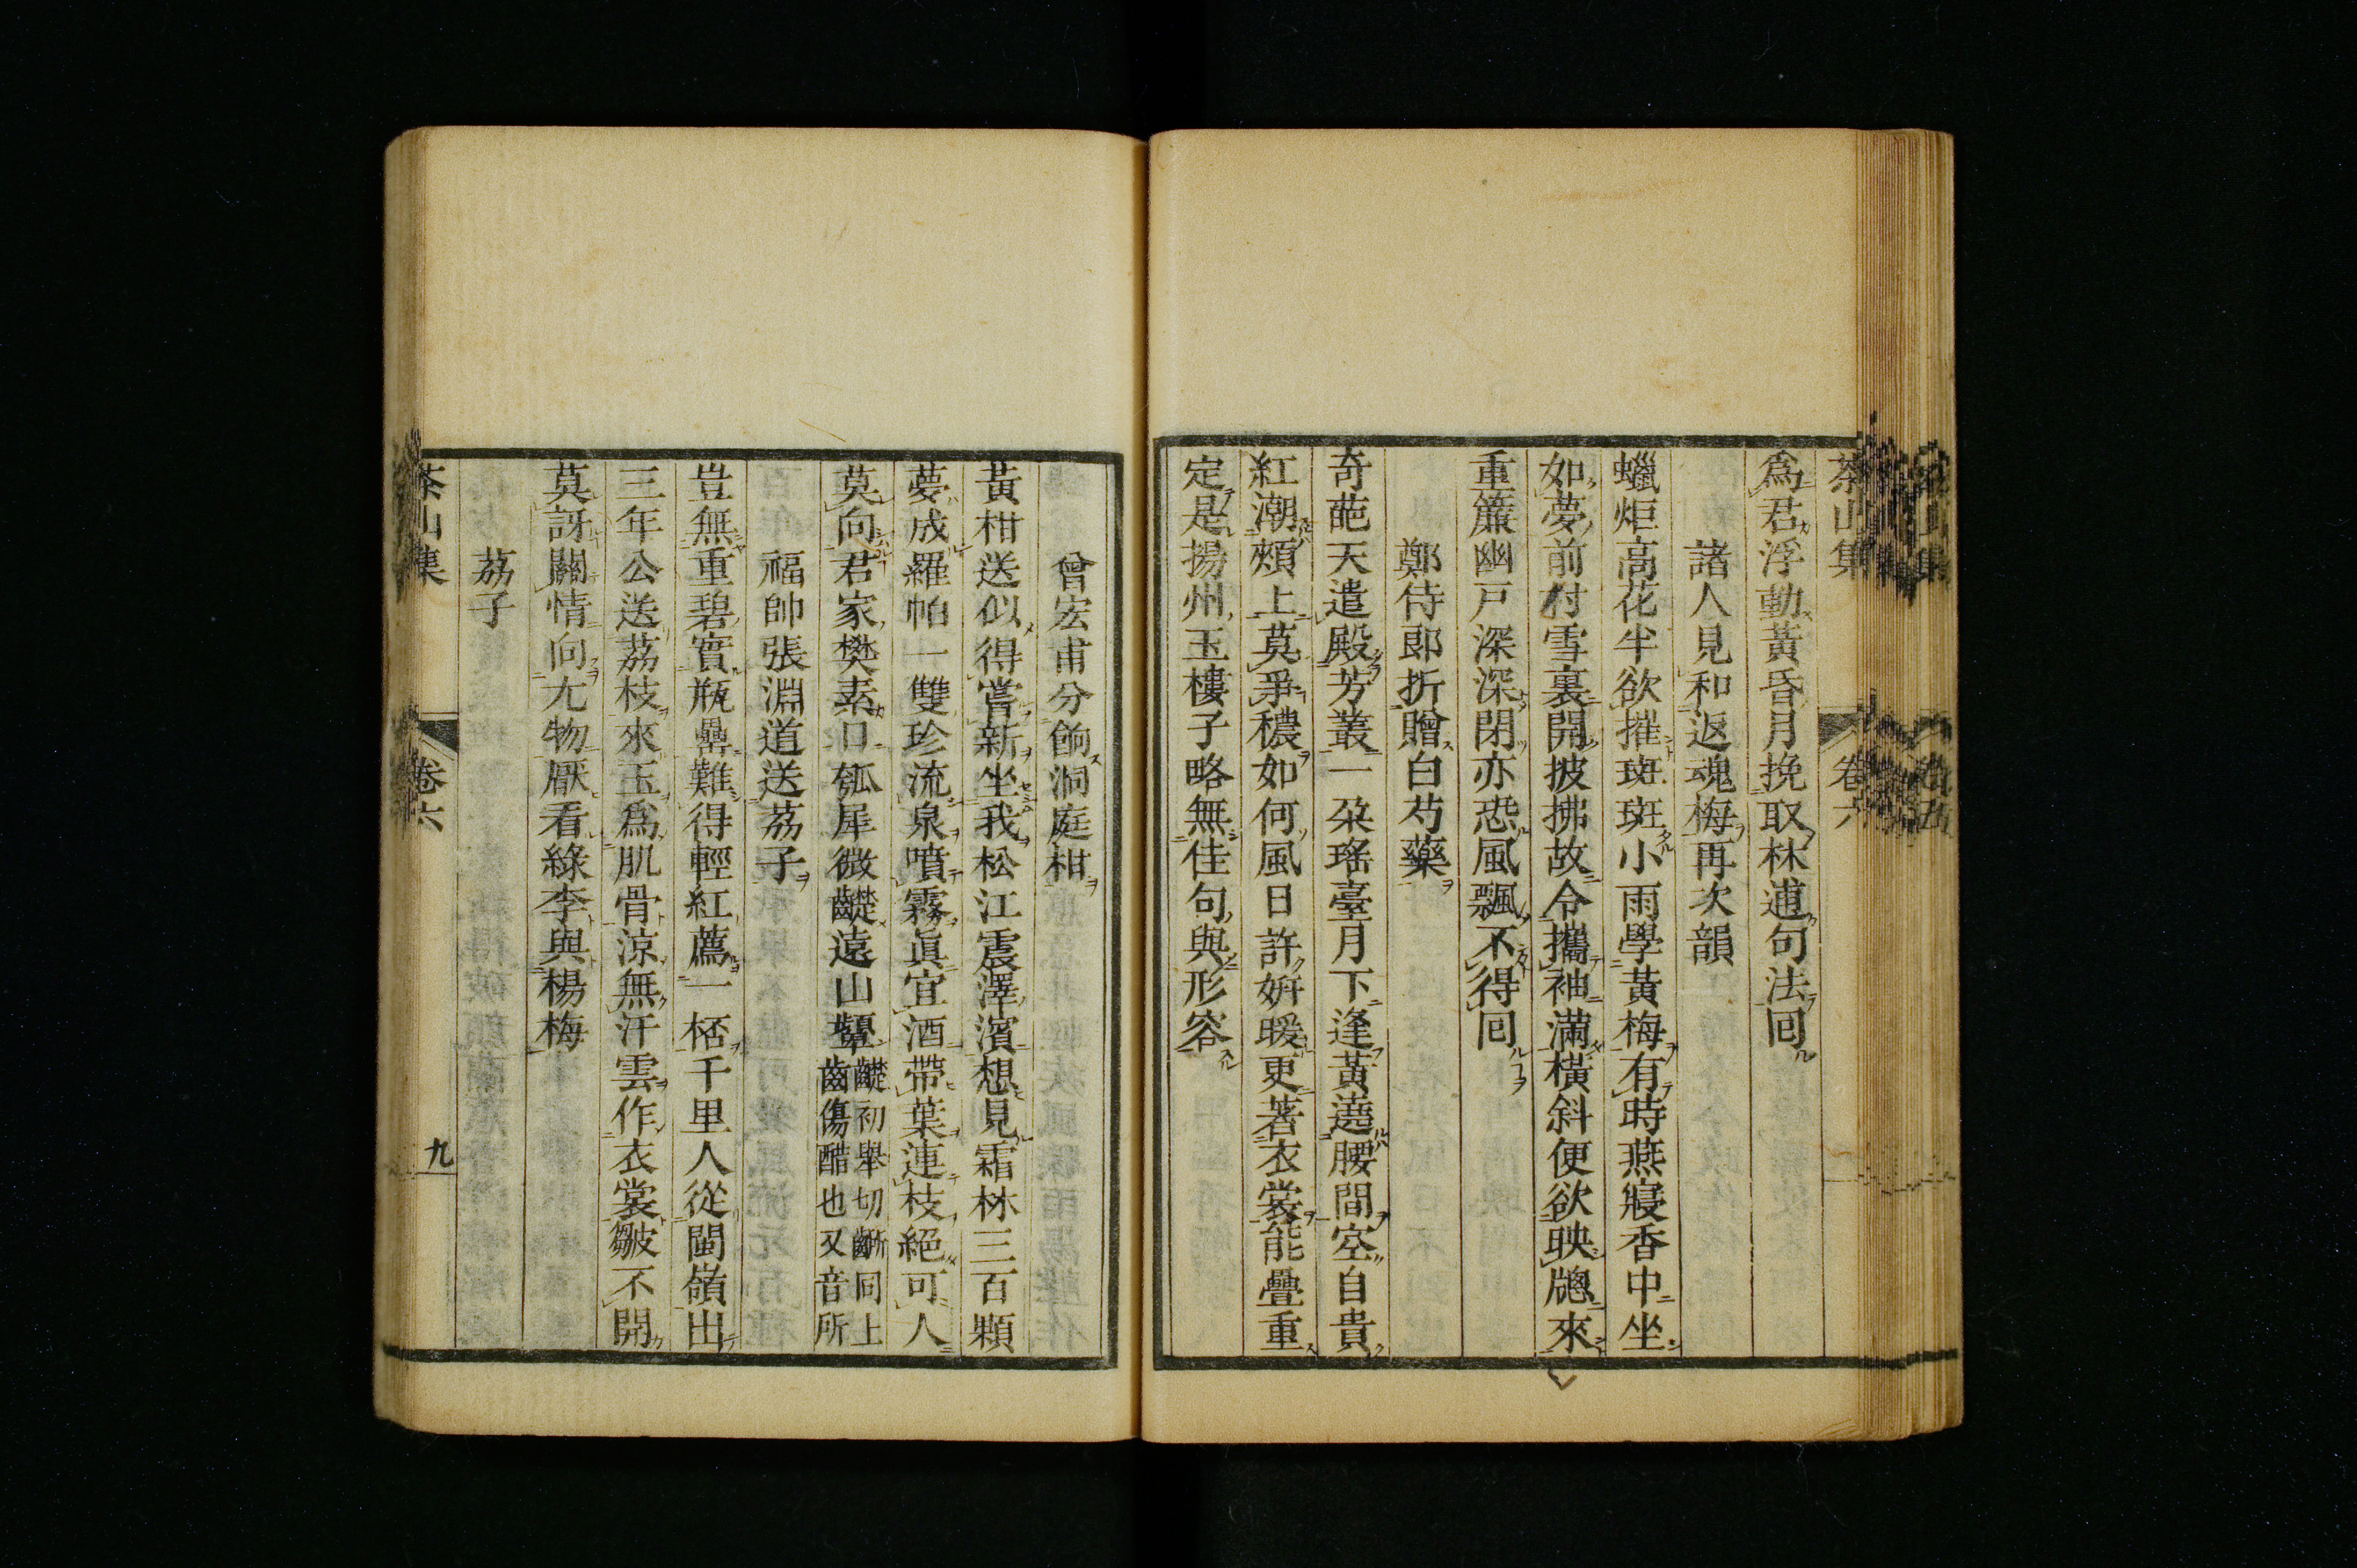 茶山集　卷六
爲君浮動黃昏月挽取林逋句法回
諸人見和返魂梅再次韻
蠟炬高花半欲摧斑斑小雨學黃梅有時燕寢香中坐
如夢前村雪裏開披拂故令攜袖滿橫斜便欲映牕來
重簾幽戸深深閉亦恐風飄不得回
鄭侍郎折贈白芍藥
奇葩天遣殿芳叢一朶瑤臺月下逢黃遶腰間空自貴
紅潮頰上莫爭穠如何風日許姸暖更著衣裳能疊重
定是揚州玉樓子略無佳句與形容
曾宏甫分餉洞庭柑
黃柑送似得嘗新坐我松江震澤濱想見霜林三百顆
夢成羅帕一雙珍流泉噴霧眞宜酒帶葉連枝絕可人
莫向君家樊素口瓠犀微齼遠山顰齼初舉切齭同上
齒傷酷也又音所
福帥張淵道送荔子
豈無重碧實瓶罍難得輕紅薦一桮千里人從閩嶺出
三年公送荔枝來玉爲肌骨涼無汗雲作衣裳皺不開
莫訝關情向尤物厭看綠李與楊梅
荔子
茶山集　卷六　九